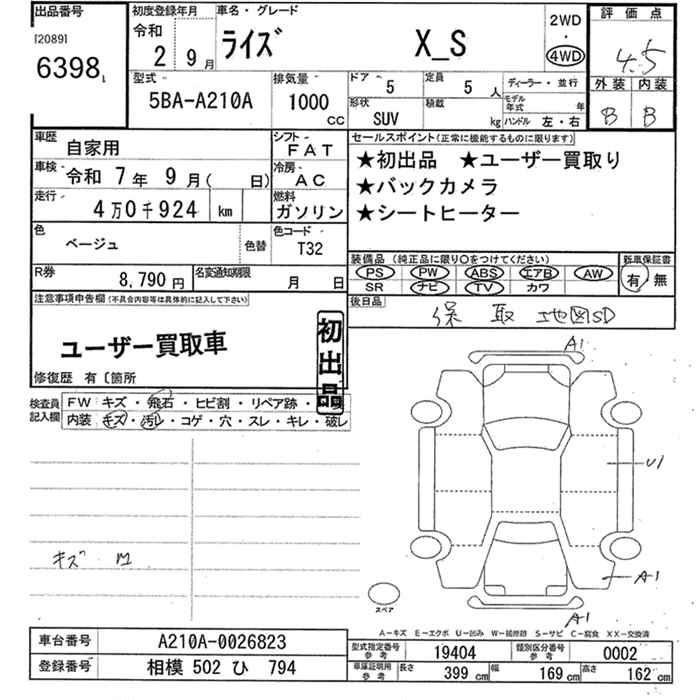 出品番号
[2089]
6398
初度登録年月
令和
2 9月
車名・グレード
ライズ X_S
2WD
・
4WD
評価点
4.5
外装 内装
B B
型式
5BA-A210A
排気量
1000
cc
ドア
5
定員
5人
形状
SUV
積載
kg
ディーラー・並行
モデル年式 年
ハンドル 左・右
車歴
自家用
シフト
FAT
車検
令和 7年 9月( 日)
冷房
AC
走行
4万0千924 km
燃料
ガソリン
色
ベージュ
色替
色コード
T32
R券
8,790円
名変通知期限
月 日
セールスポイント(正常に機能するものに限ります)
★初出品 ★ユーザー買取り
★バックカメラ
★シートヒーター
装備品(純正品に限り○をつけてください)
PS PW ABS エアB AW
SR ナビ TV カワ
新車保証書
有 無
後日品
保 取 地図SD
注意事項申告欄(不具合内容等は具体的に記入して下さい)
ユーザー買取車
初出品
修復歴 有〔箇所
検査員記入欄
FW キズ・飛石・ヒビ割・リペア跡・
内装 キズ・汚レ・コゲ・穴・スレ・キレ・破レ
キズ M
A1
U1
A1
A1
スペア
A-キズ E-エクボ U-凹み W-補修跡 S-サビ C-腐食 XX-交換済
車台番号
A210A-0026823
登録番号
相模 502 ひ 794
型式指定番号
参考
19404
類別区分番号
参考
0002
車庫証明用
参考
長さ
399 cm
幅
169 cm
高さ
162 cm